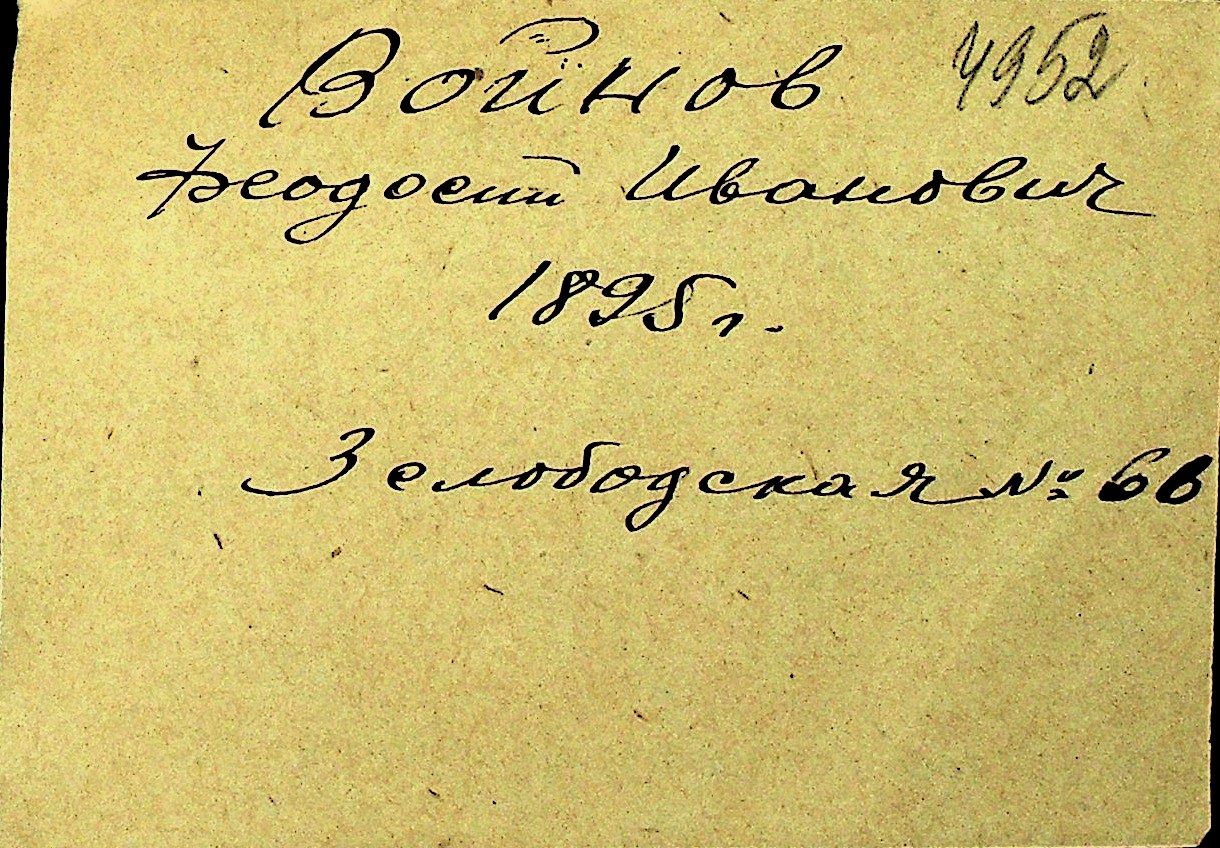 Войнов 4952
Феодосий Иванович
1895 г.
Зелободская № 66